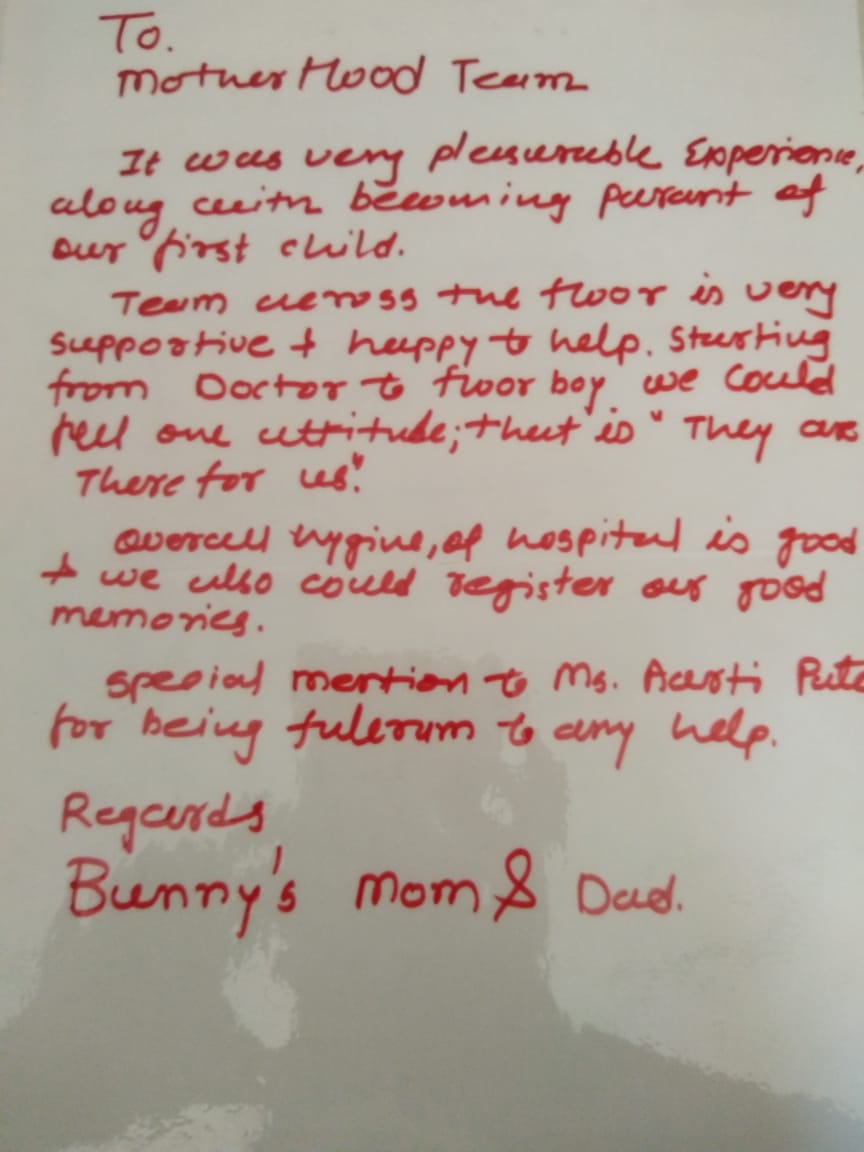 To.
MotherHood Team
It was very pleasurable Experience,
along with becoming parant of
our first child.
Team across the floor is very
supportive & happy to help. Starting
from Doctor to floor boy we could
feel one attitude; that is "They are
There for us".
overall hygine, of hospital is good
& we also could register our good
memories.
special mention to Ms. Aarti
for being fulcrum to any help.
Regards
Bunny's Mom & Dad.